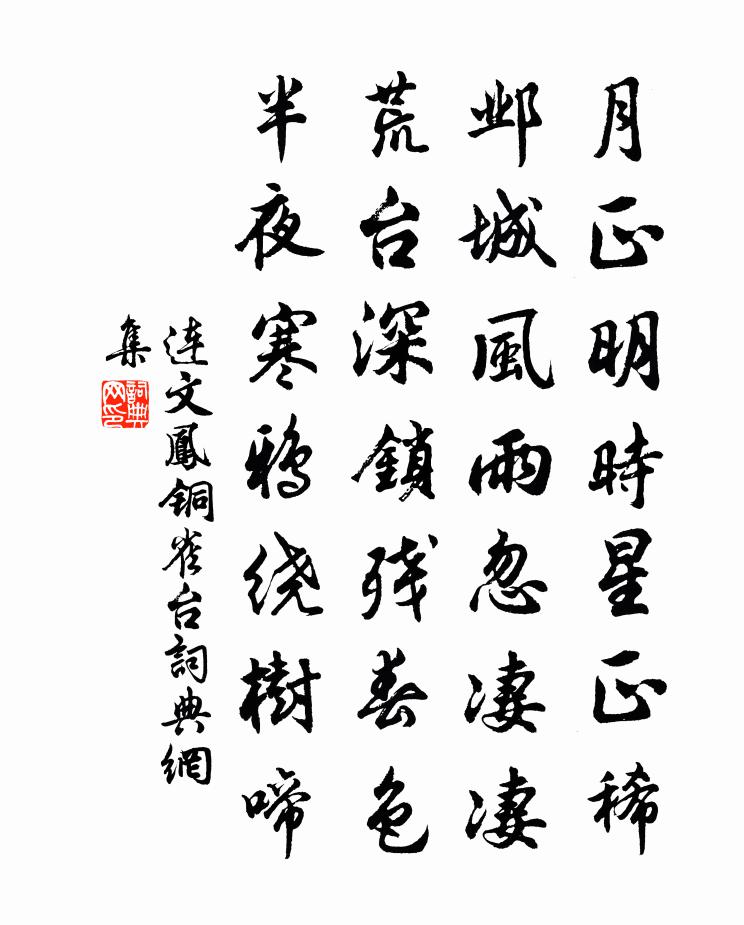 月正明時星正稀
邺城風雨忽凄凄
荒台深鎖残春色
半夜寒鴉绕樹啼
连文鳳铜雀台詞典網
集
詞典
网印